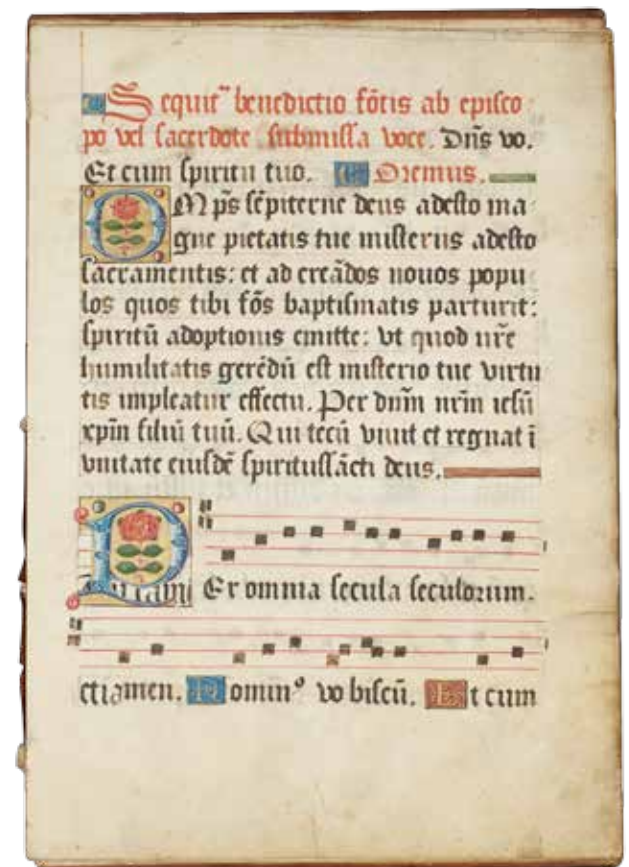 Sequit᷑ benedictio fōtis ab epiſco
po vel ſacerdote ſubmiſſa voce. Dn̄s vo.
Et cum ſpiritu tuo. Oremus.
OMp̄s ſēpiterne deus adeſto ma
gne pietatis tue miſteriis adeſto
ſacramentis: et ad creādos nouos popu
los quos tibi fōs baptiſmatis parturit:
ſpiritū adoptionis emitte: vt quod nr̄e
humilitatis gerēdū eſt miſterio tue virtu
tis impleatur effectu. Per dn̄m nr̄m ieſū
xp̄m filiū tuū. Qui tecū viuit et regnat ī
vnitate eiuſdē ſpirituſſācti deus.
PEr omnia ſecula ſeculorum.
Domin⁹ vo biſcū. Et cum